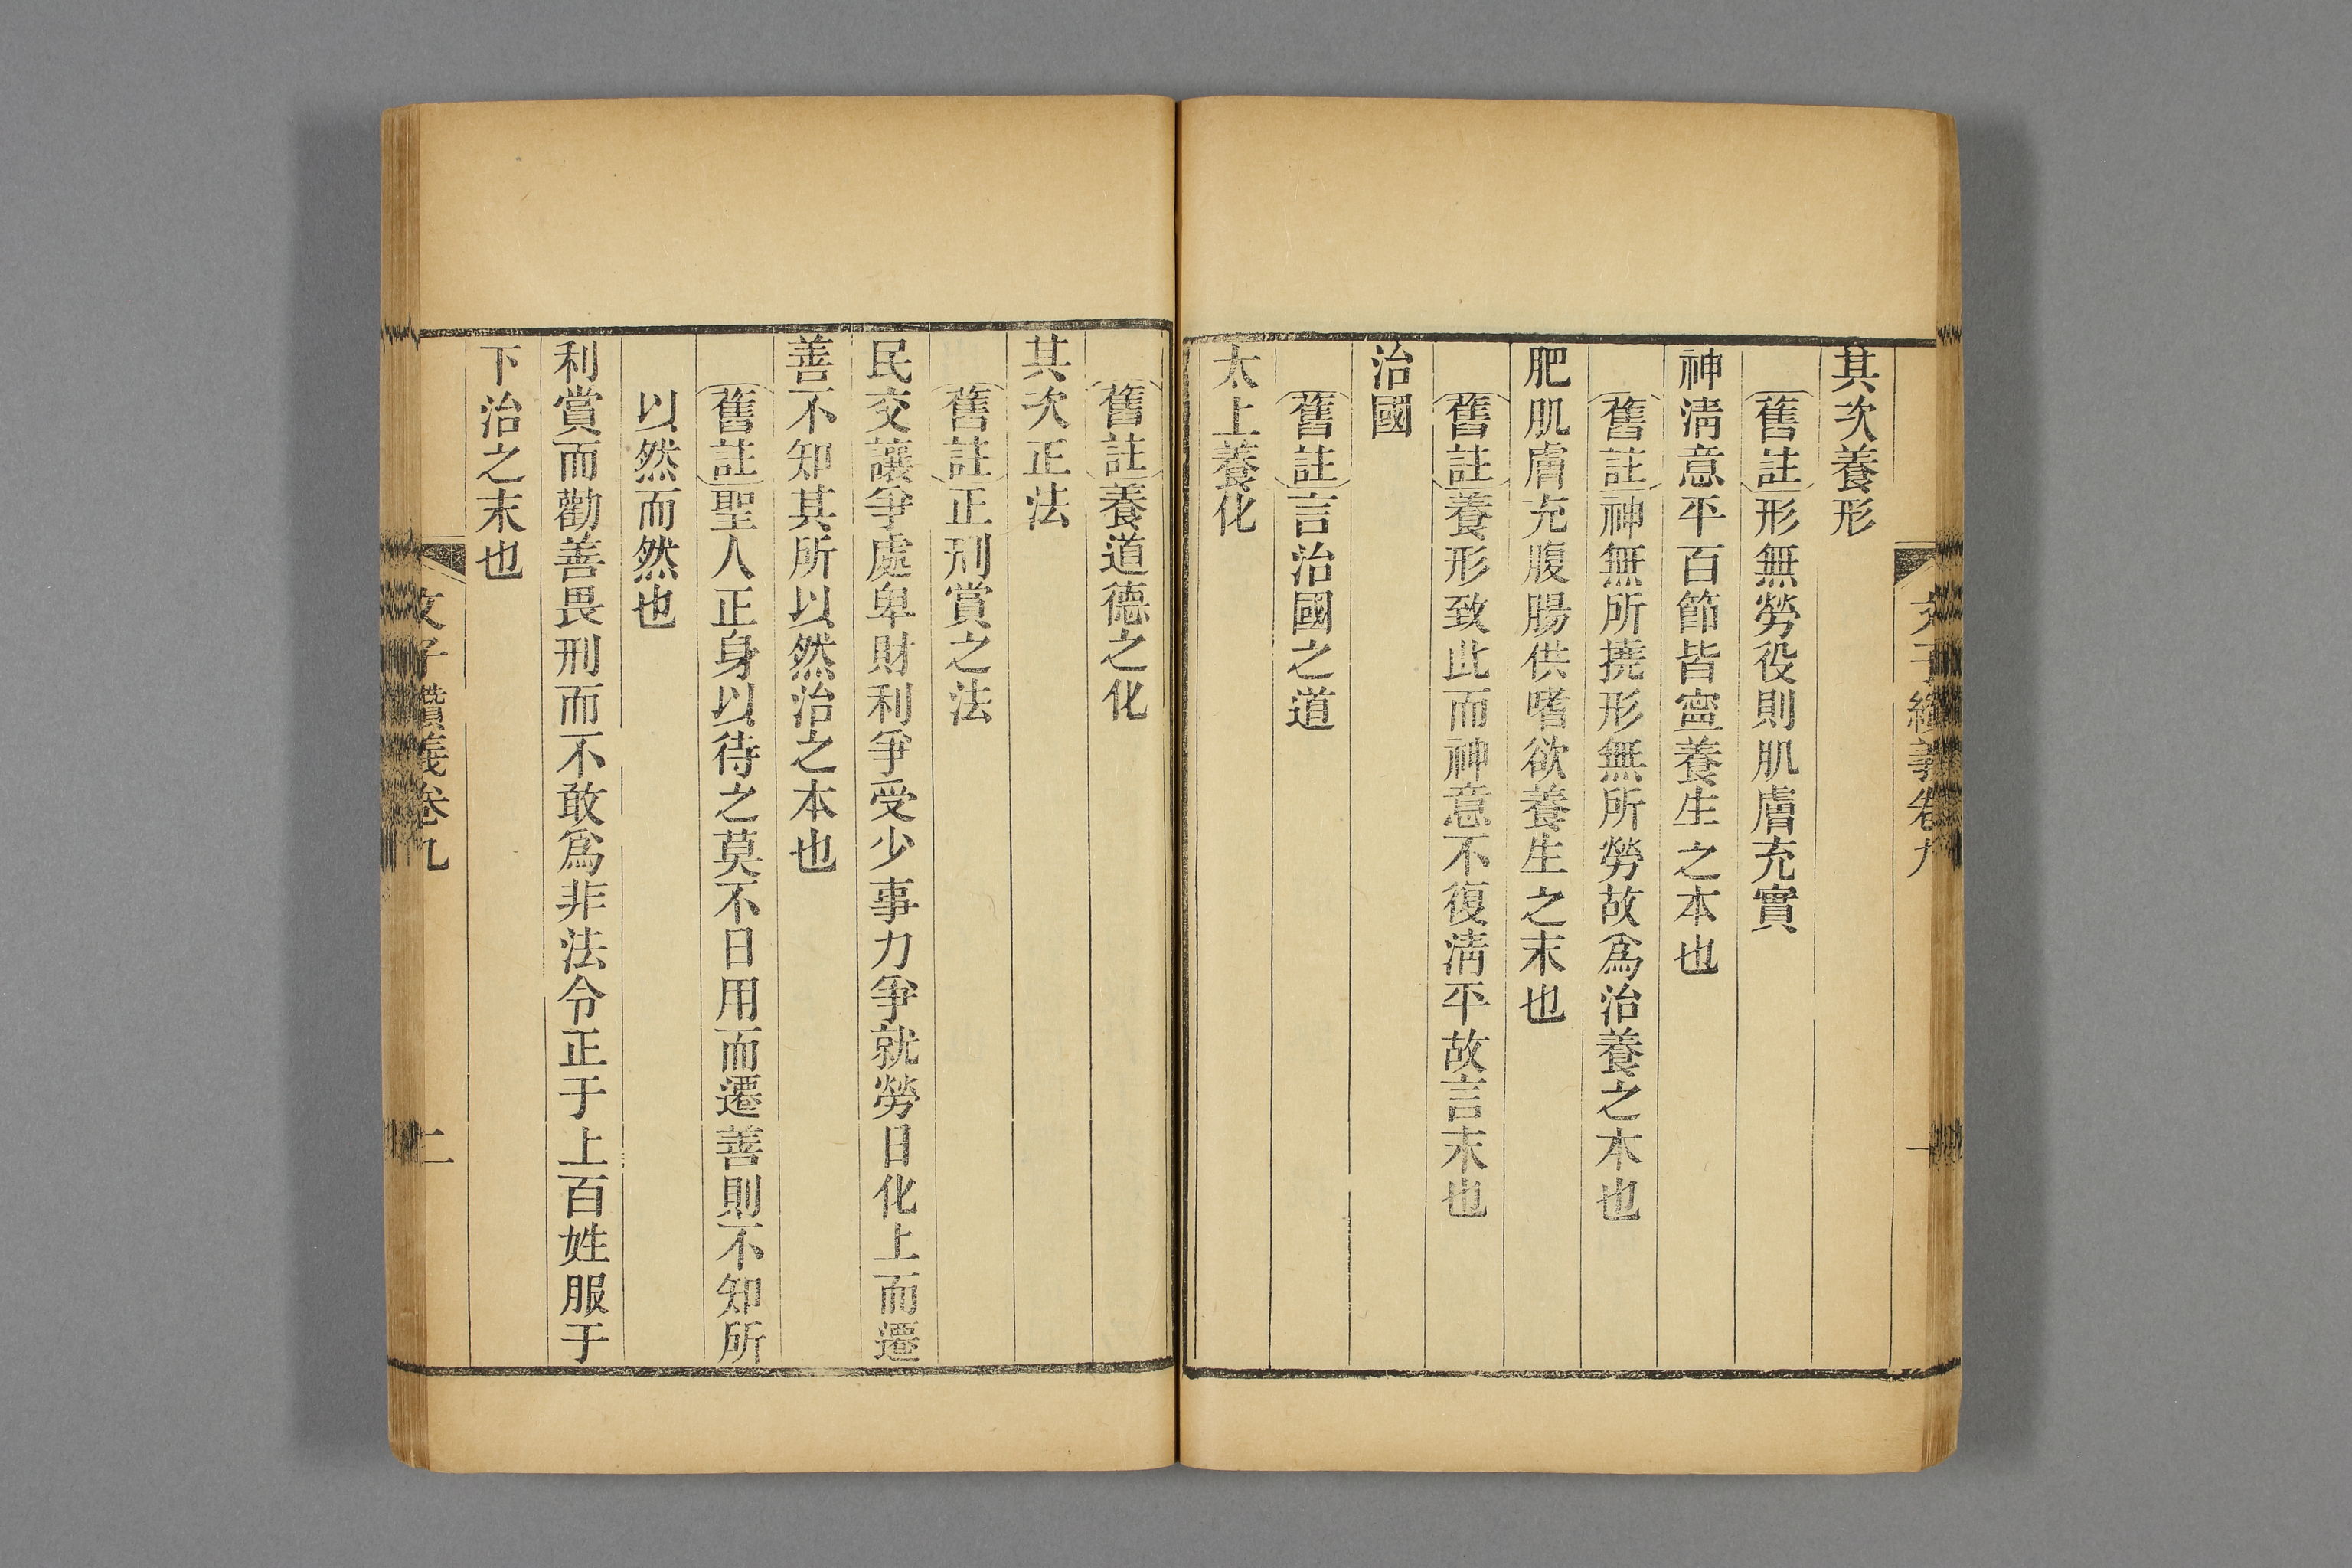 文子纘義卷九
一
其次養形
舊註形無勞役則肌膚充實
神淸意平百節皆寍養生之本也
舊註神無所撓形無所勞故爲治養之本也
肥肌膚充腹腸供嗜欲養生之末也
舊註養形致此而神意不復淸平故言末也
治國
舊註言治國之道
太上養化
舊註養道德之化
其次正法
舊註正刑賞之法
民交讓爭處卑財利爭受少事力爭就勞日化上而遷
善不知其所以然治之本也
舊註聖人正身以待之莫不日用而遷善則不知所
以然而然也
利賞而勸善畏刑而不敢爲非法令正于上百姓服于
下治之末也
文子纘義卷九
二